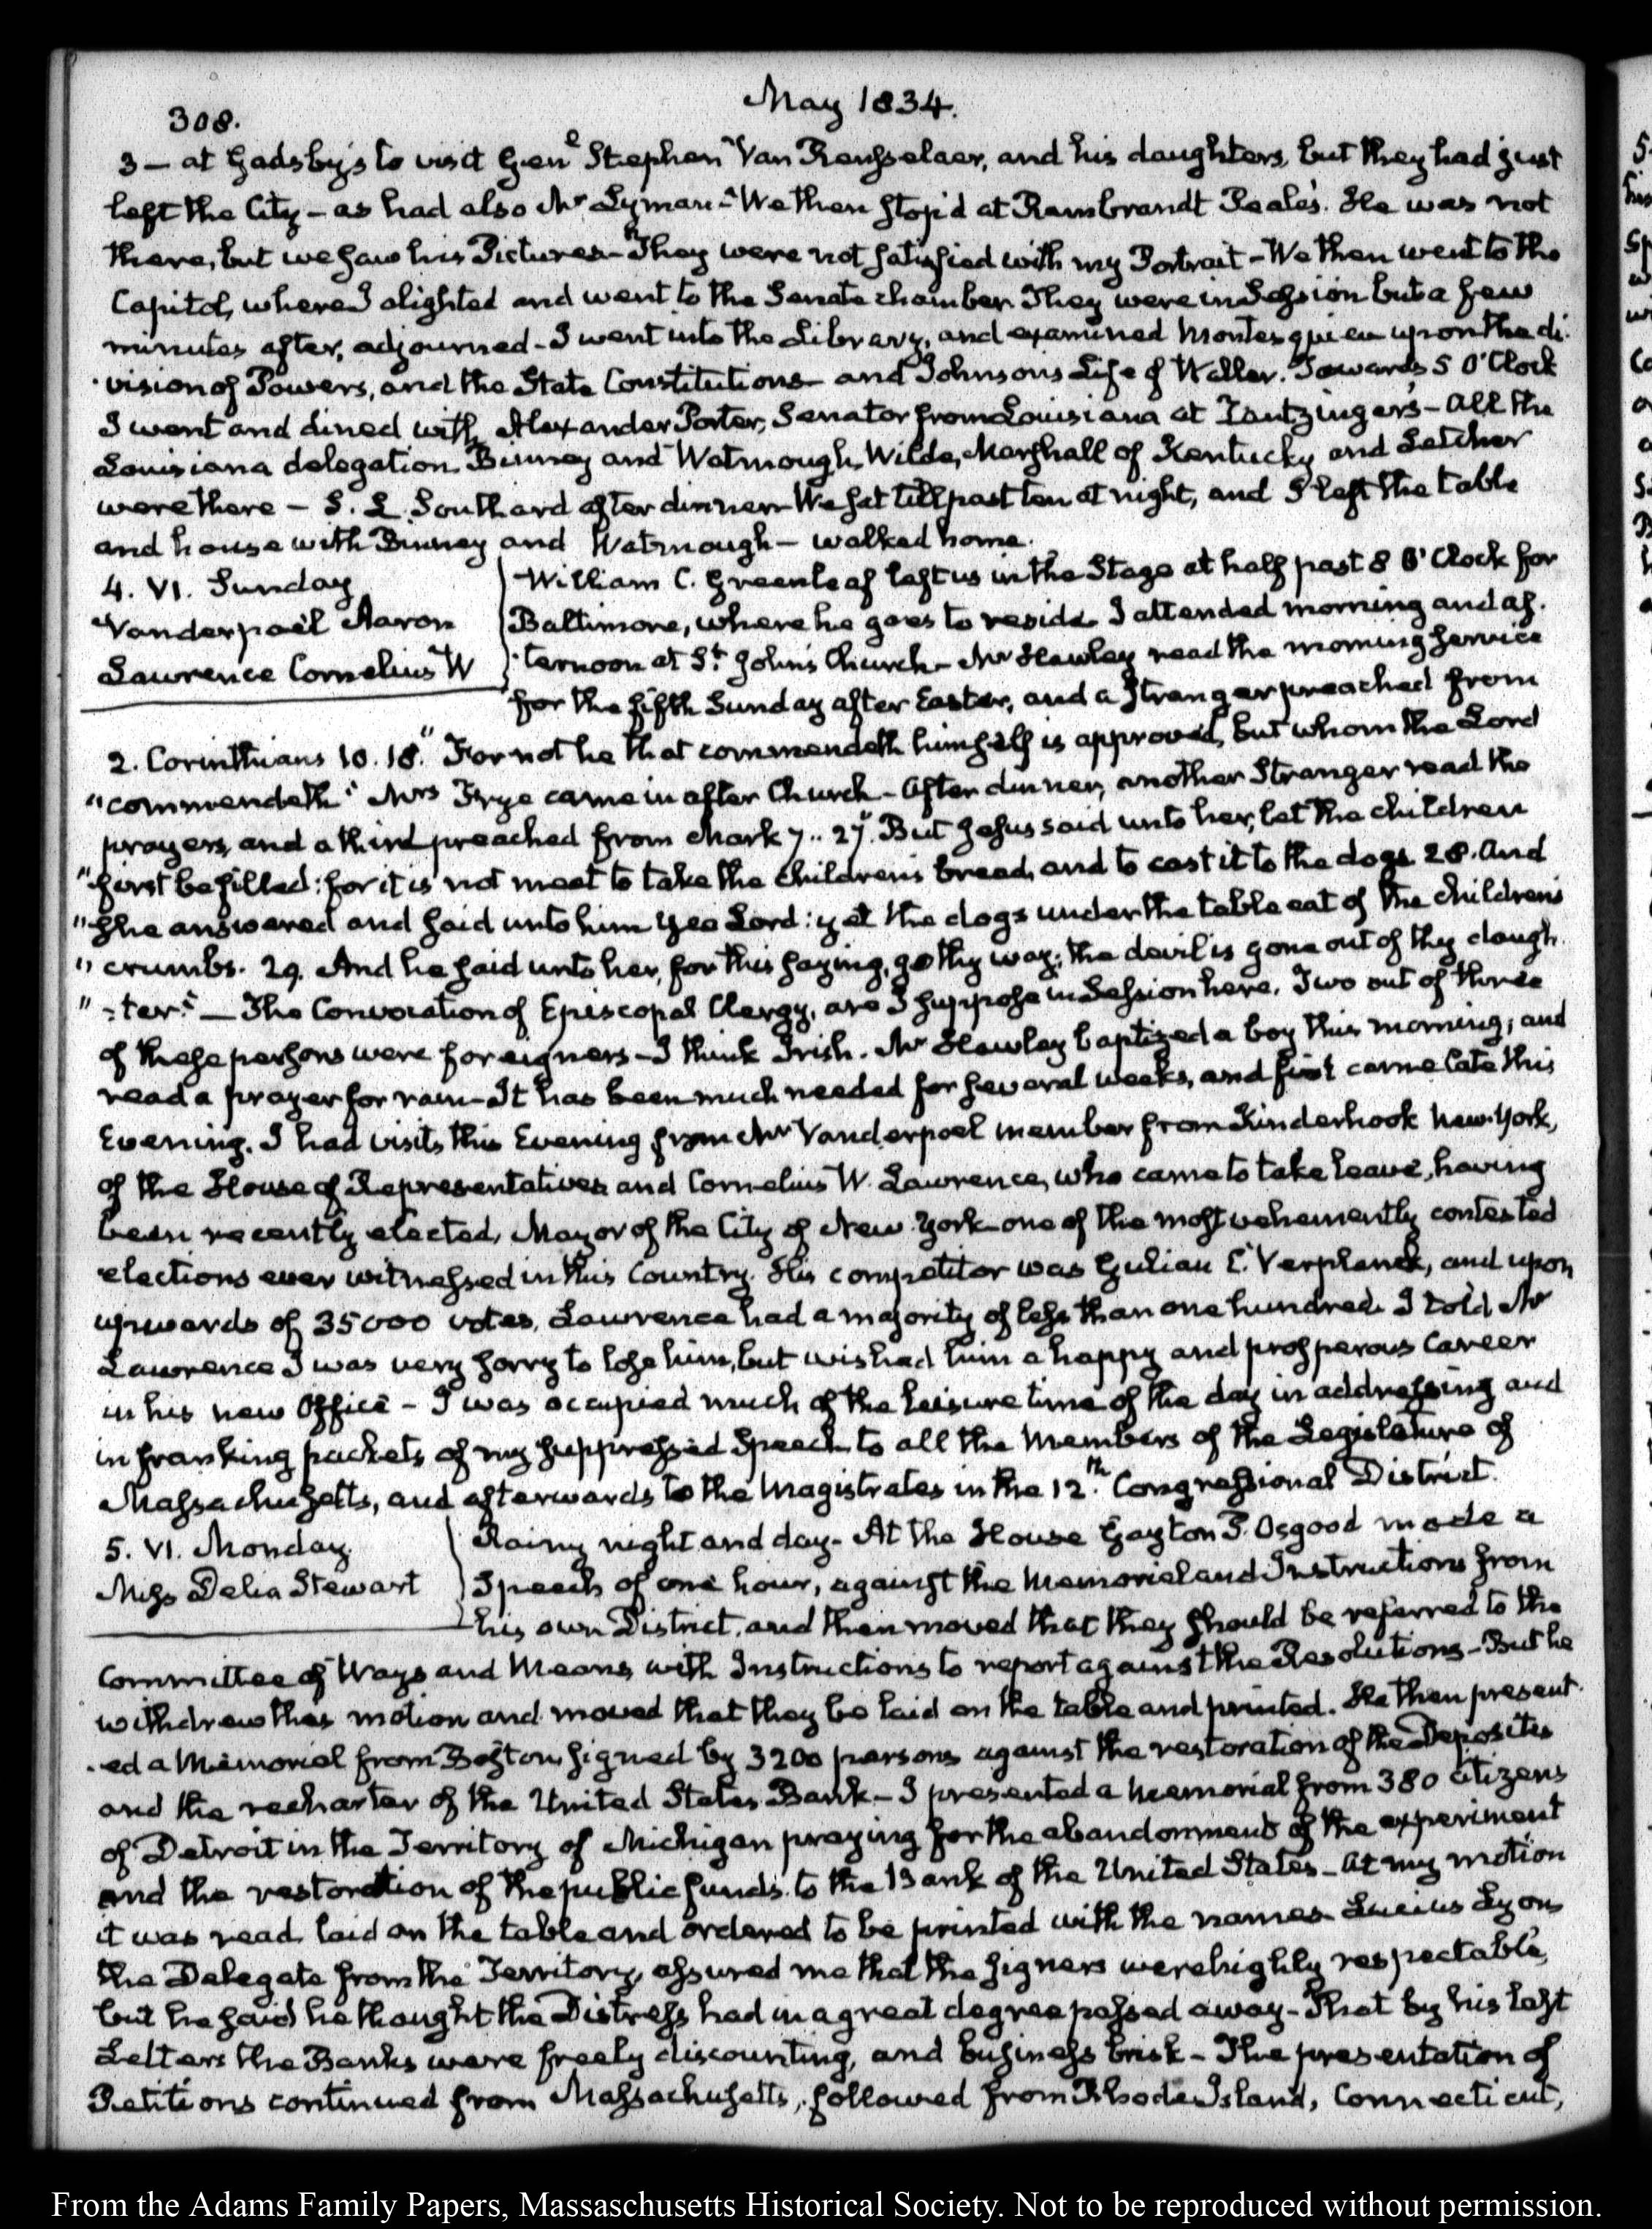 308.
May 1834.
3 — at Gadsby's to visit Genl. Stephen Van Rensselaer, and his daughters, but they had just
left the City — as had also Mr Lyman — We then stop'd at Rembrandt Peale's. He was not
there, but we saw his Pictures — They were not satisfied with my Portrait — We then went to the
Capitol, where I alighted and went to the Senate chamber They were in Session but a few
minutes after, adjourned — I went into the Library, and examined Montesquieu upon the di-
-vision of Powers, and the State Constitutions — and Johnson's Life of Waller. Towards 5 O'Clock
I went and dined with Alexander Porter, Senator from Louisiana at Fantzinger's — All the
Louisiana delegation Binney and Watmough, Wilde, Marshall of Kentucky and Letcher
were there — S. L. Southard after dinner We sat till past ten at night, and I left the table
and house with Binney and Watmough — walked home.
4. VI. Sunday
Vanderpoel Aaron
Lawrence Cornelius W
William C. Greenleaf left us in the Stage at half past 8 O'Clock for
Baltimore, where he goes to reside. I attended morning and af-
-ternoon at St. John's Church — Mr Hawley read the morning service
for the fifth Sunday after Easter, and a Stranger preached from
2. Corinthians 10. 18. "For not he that commendeth himself is approved, but whom the Lord
"commendeth" Mrs Frye came in after Church — After dinner, another Stranger read the
prayers, and a third preached from Mark 7.. 27. "But Jesus said unto her, let the children
"first be filled: for it is not meet to take the children's bread, and to cast it to the dogs 28. And
"she answered and said unto him Yes Lord: yet the dogs under the table eat of the children's
"crumbs. 29. And he said unto her, for this saying, go thy way; the devil is gone out of thy daugh-
"-ter." — The Convocation of Episcopal Clergy, are I suppose in Session here. Two out of three
of these persons were foreigners — I think Irish. Mr Hawley baptized a boy this morning; and
read a prayer for rain — It has been much needed for several weeks, and first came late this
Evening. I had visits this Evening from Mr Vanderpoel member from Kinderhook New-York,
of the House of Representatives and Cornelius W. Lawrence, who came to take leave, having
been recently elected, Mayor of the City of New-York — one of the most vehemently contested
elections ever witnessed in this Country. His competitor was Gulian C. Verplanck, and upon
upwards of 35000 votes, Lawrence had a majority of less than one hundred. I told Mr
Lawrence I was very sorry to lose him, but wished him a happy and prosperous career
in his new Office — I was occupied much of the leisure time of the day in addressing and
in franking packets of my suppressed Speech to all the Members of the Legislature of
Massachusetts, and afterwards to the Magistrates in the 12th. Congressional District.
5. VI. Monday
Miss Delia Stewart
Rainy night and day — At the House Gayton P. Osgood made a
Speech of one hour, against the Memorial and Instructions from
his own District, and then moved that they should be referred to the
Committee of Ways and Means with Instructions to report against the Resolutions — But he
withdrew this motion and moved that they be laid on the table and printed. He then present-
-ed a Memorial from Boston, signed by 3200 persons against the restoration of the Deposites
and the recharter of the United States Bank — I presented a Memorial from 380 citizens
of Detroit in the Territory of Michigan praying for the abandonment of the experiment
and the restoration of the public funds to the Bank of the United States — At my motion
it was read, laid on the table and ordered to be printed with the names — Lucius Lyon
the Delegate from the Territory, assured me that the signers were highly respectable,
but he said he thought the Distress had in a great degree passed away — That by his last
Letters the Banks were freely discounting, and business brisk — The presentation of
Petitions continued from Massachusetts, followed from Rhode-Island, Connecticut,
From the Adams Family Papers, Massaschusetts Historical Society. Not to be reproduced without permission.